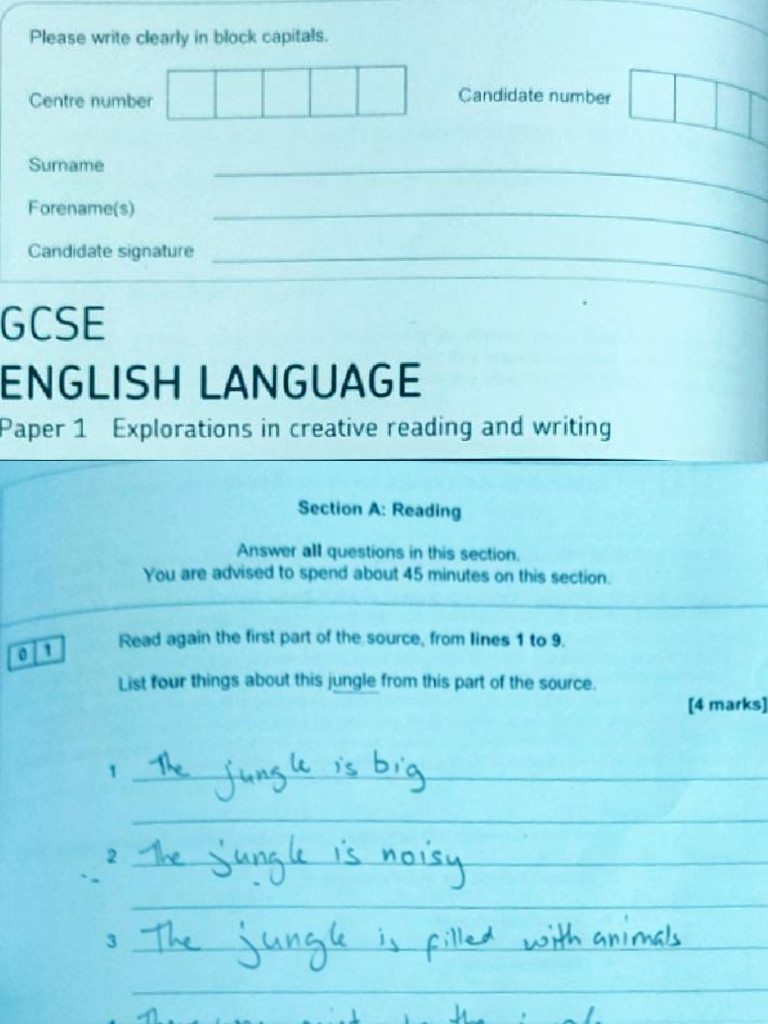 Please write clearly in block capitals.
Centre number
Candidate number
Surname
Forename(s)
Candidate signature
GCSE
ENGLISH LANGUAGE
Paper 1 Explorations in creative reading and writing
Section A: Reading
Answer all questions in this section.
You are advised to spend about 45 minutes on this section.
0 1 Read again the first part of the source, from lines 1 to 9.
List four things about this jungle from this part of the source.
[4 marks]
1 The jungle is big
2 The jungle is noisy
3 The jungle is filled with animals